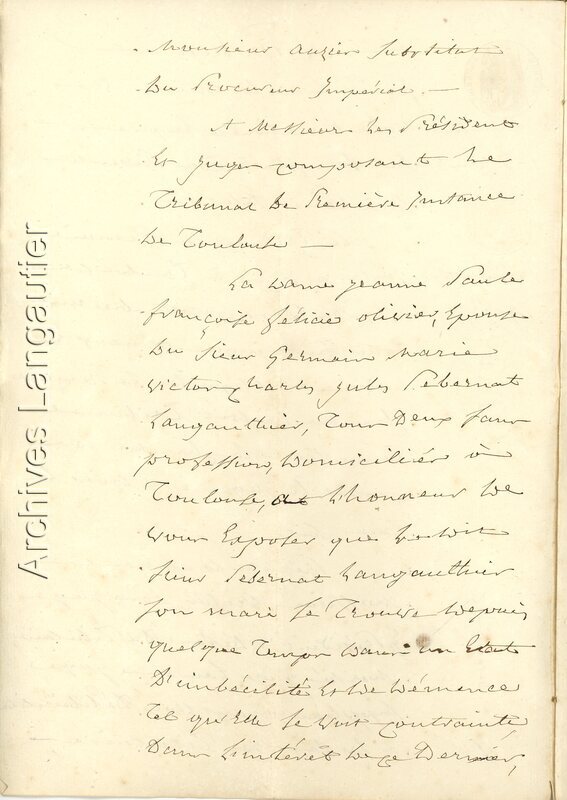 Monsieur Auzier Substitut
Du Procureur Impérial. —
A Messieurs Les Président
Et Juges composant Le
Tribunal De Première Instance
De Toulouse —
La Dame Jeanne Paule
françoise félicie Olivier, Epouse
Du Sieur Germain Marie
Victor Charles Jules Pebernat
Langauthier, Tous Deux sans
profession, Domiciliés à
Toulouse, a L'honneur De
vous Exposer que Le dit
Sieur Pebernat Langauthier
son mari se Trouve Depuis
quelque Temps Dans un Etat
D'imbécilité Et De Démence
Tel qu'Elle se voit contrainte,
Dans L'intérêt De ce Dernier,
Archives Langautier